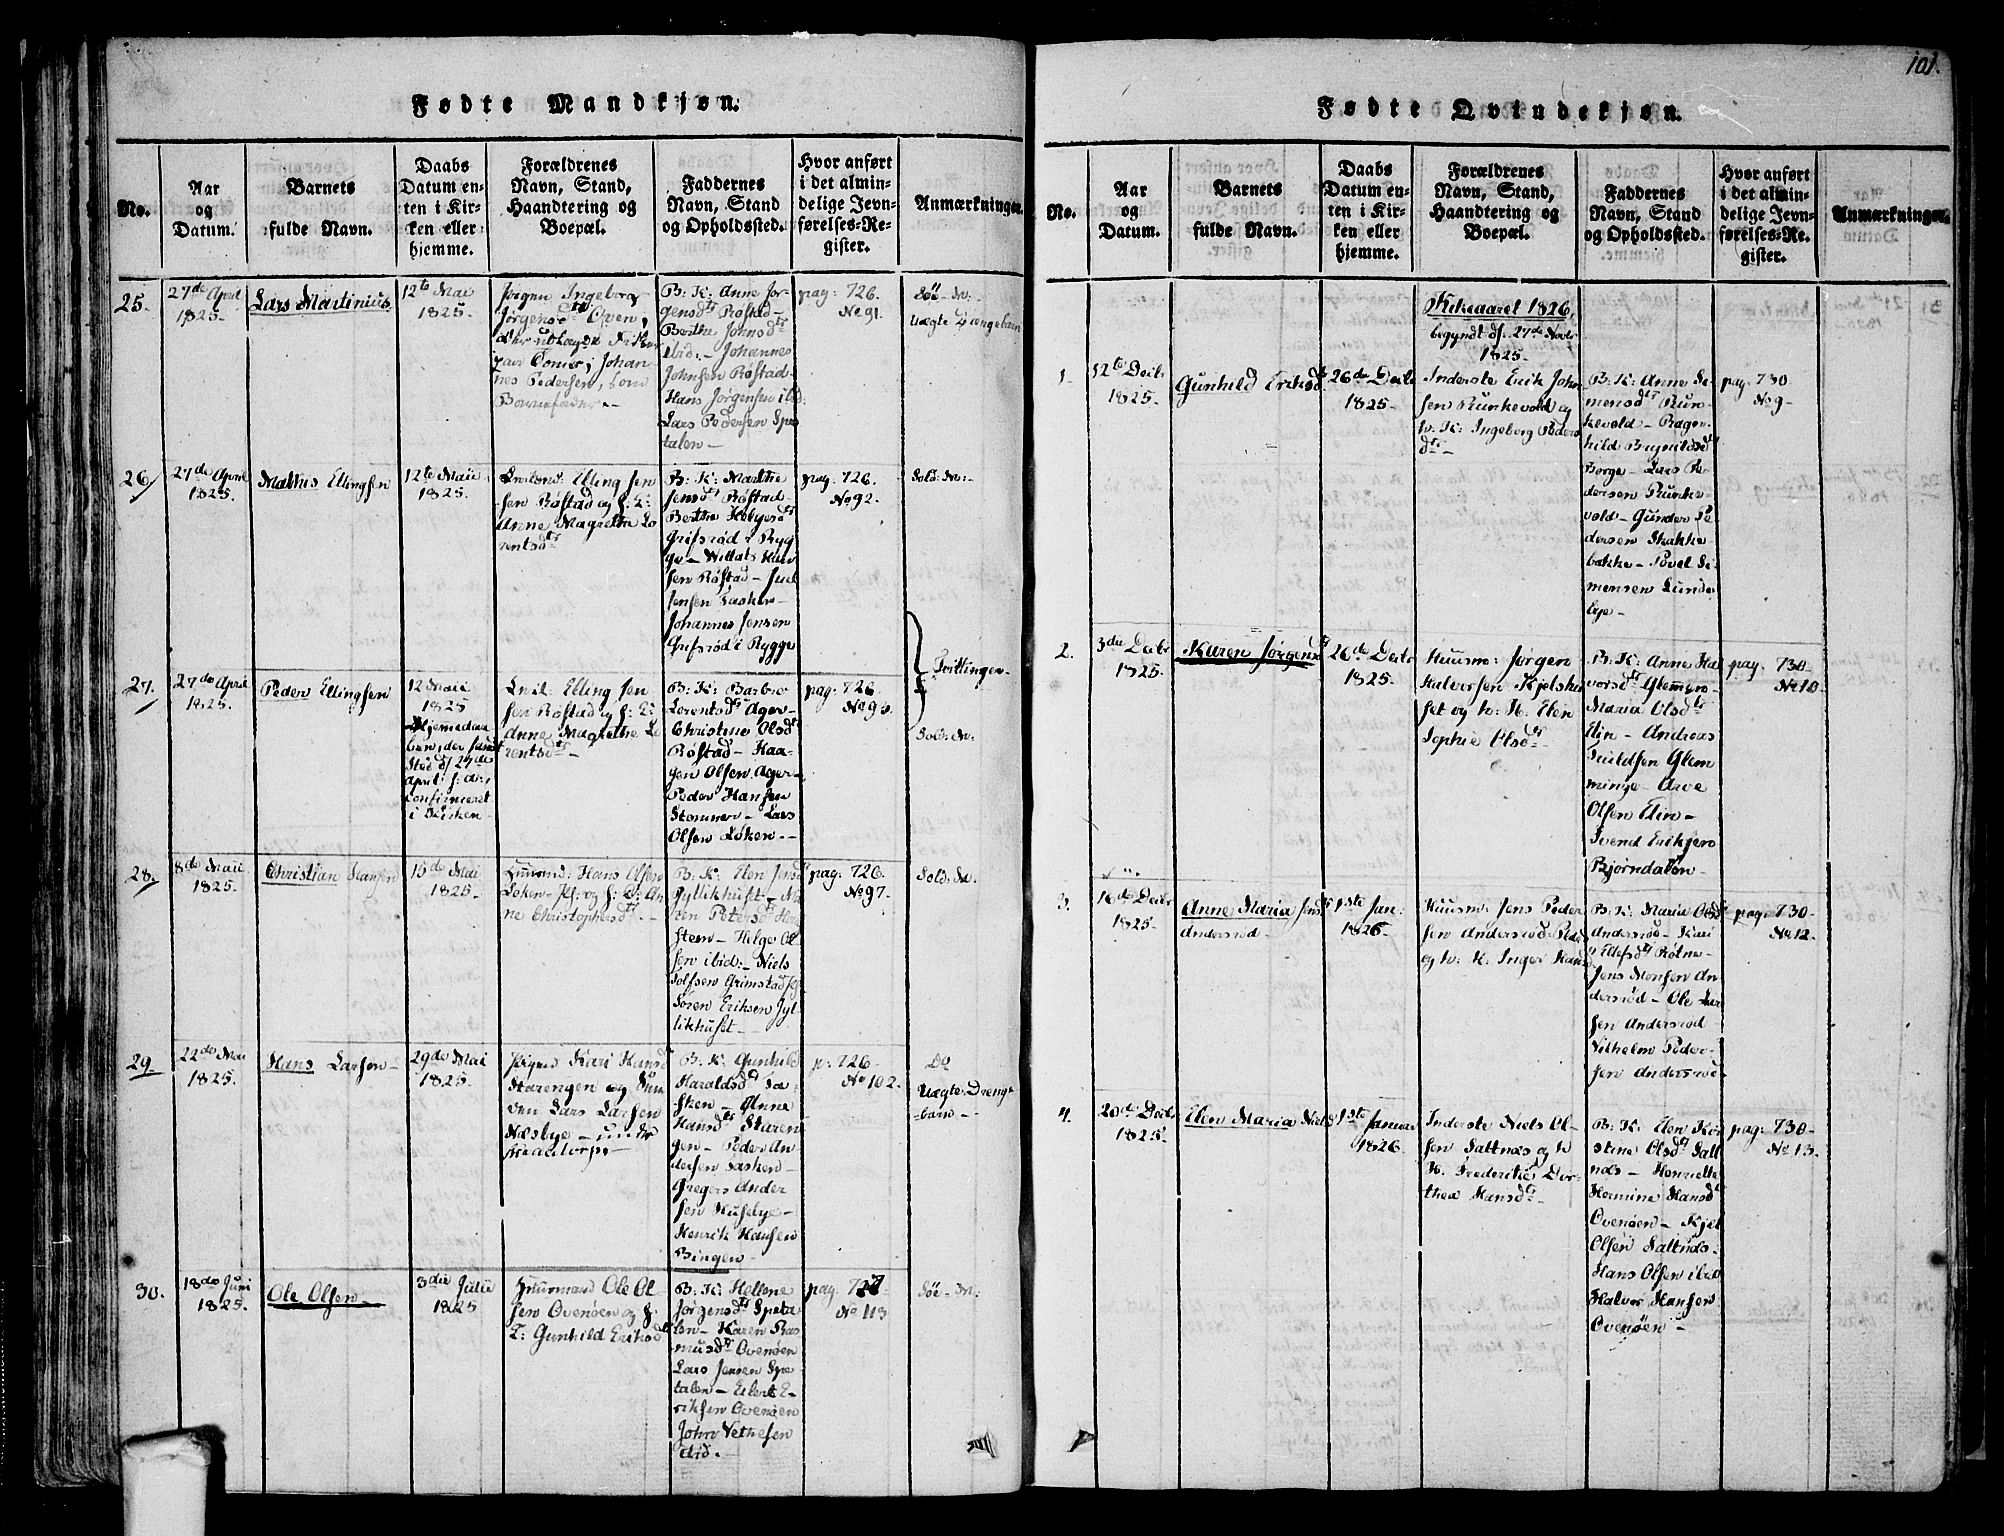 101.
Fødte Mandkjøn.
No.
Aar
og
Datum.
Barnets
fulde Navn.
Daabs
Datum en-
ten i Kir-
ken eller
hjemme.
Forældrenes
Navn, Stand,
Haandtering og
Boepæl.
Faddernes
Navn, Stand
og Opholdssted.
Hvor anført
i det almin-
delige Jevn-
førelses-Re-
gister.
Anmærkninger.
25.
27de April
1825.
Lars Martinius
12te Mai
1825.
Jørgen Ingeborg
Jørgensdtr Oven,
Pedersen, som
Barnefader.-
B: K: Anne Jør-
gensdtr Røstad-
Berthe Johnsdtr
ibid:- Johannes
Johnsen Røstad-
Hans Jørgensen ibid:
Lars Pedersen Spe
talen-
pag: 726.
No 91.
Søe-M:
Uægte Drengebarn
26.
27de April
1825.
Mathis Ellingsen
12te Maii
1825.
Elling Jen
sen Røstad og
Anne Magrethe Lo
rentsdtr
B: K: Marthe
Jensdtr Røstad-
Berthe
Grifsrød i Ryg
ge-
sen Røstad-
Jensen Tasken-
Johannes Jensen
Grifsrød i Rygge
pag: 726.
No 92.
Sold: M:
27.
27de April
1825.
Peder Ellingsen
12 Maii
1825
Hjemmedaa
ben, der fandt
Sted d/ 27de
April f: A:,
confirmeret
i Kirken
Elling Jen
sen Røstad og
Anne Magrethe Lo
rentsdtr-
B: K: Barbro
Lorentsdtr Ager-
Christine Olsdtr
Røstad- Haa-
gen Olsen Ager-
Peder Hansen
Stommen- Lars
Olsen Løken--
pag: 726.
Tvillinger-
Sold: M:
28.
8de Maii
1825.
Christian Hansen
15de Mai
1825.
Hans Olsen
Løken
ne Christophersdtr-
B: K: Elen Jensdtr
Gyllikhuset- Ma
ren Petersdtr
steen- Helge Ol
sen ibid:- Niels
Tolfsen Grimstad
Søren Eriksen Jyl
likhuset-
pag: 726.
No 97.
Sold: M.
29.
22de Mai
1825.
Hans Larsen-
29de Mai
1825.
Pigen Kari Hansdtr
Starengen og
Lars Larsen
Næsbye- under
B: K: Gunhild
Haraldsdtr Ta-
sken- Anne
Hansdtr Staren
gen- Peder An
dersen Tasken-
Gregers Ander
sen Husebye-
Henrik Hansen
Bingen-
p: 726-
No 102.
Do
Uægte Drenge
barn-
30.
18de Juni
1825.
Ole Olsen-
3die Julii
1825
Ole Ol
sen Ovenøen og
Gunhild Eriksdtr
B: K: Hellene
Jørgensdtr Speta
len- Karen Ras
musdtr Ovenøen
Lars Jensen Spe
talen- Eilert E-
riksen Ovenøen
John Vethesen
ibid.-
pag. 727
No 113
Søe-M:
Fødte Qvindekjøn.
No.
Aar
og
Datum.
Barnets
fulde Navn.
Daabs
Datum en-
ten i Kir-
ken eller
hjemme.
Forældrenes
Navn, Stand,
Haandtering og
Boepæl.
Faddernes
Navn, Stand
og Opholdssted.
Hvor anført
i det almin-
delige Jevn-
førelses-Re-
gister.
Anmærkninger.
Kirkeaaret 1826,
begyndt d/. 27de Novbr
1825.
1.
12te Decbr
1825.
Gunhild Eriksdtr
26de Decbr
1825.
Inderste Erik John
sen Runkevold og
h. K: Ingeborg Peders
dtr-
B: K: Anne Si-
mensdtr Run-
kevold- Ragn-
hild Brynildsdtr
Borge- Lars Pe-
dersen Runke-
vold- Gunder Pe
dersen Skakke-
bakke- Povel Si-
mensen Lunde
bye-
pag: 730
No 9-
2.
3die Decbr
1825.
Karen Jørgensdtr
26de Decbr
1825.
Huusm: Jørgen
Halvorsen Kjølshu
set og h: K. Elen
Sophie Olsdtr-
B: K: Anne Hal
vorsdtr Glemmin-
Maria Olsdtr
Elin- Andreas
Truldsen Glem
minge- Arve
Olsen Elin-
Svend Eriksen
Bjørndalen-
pag: 730-
No 10.
3.
16de Decbr
1825.
Anne Maria Jensdtr
Andersrød-
1ste Jan:
1826.
Huusm: Jens Peder
sen Andersrød
og h. K. Inger Hans
B: K: Maria Olsdtr
Andersrød- Kari
Ellefsdtr Røtne-
Jens Monsen An
dersrød- Ole Lar
sen Andersrød
Vilhelm Peder-
sen Andersrød
pag: 730-
No 12.
4.
20de Decbr
1825.
Elen Maria Nielsdtr
1ste Januar
1826.
Inderste Niels Ol-
sen Saltnæs og h
K. Frederikke Dor-
thea Hansdtr-
B: K: Elen Kir
stine Olsdtr Salt
næs- Henriette
Hermine Hansdtr
Ovenøen- Kjel
Olsen Saltnæs-
Hans Olsen ibid
Halvor Hansen
Ovenøen-
pag: 730-
No 13.